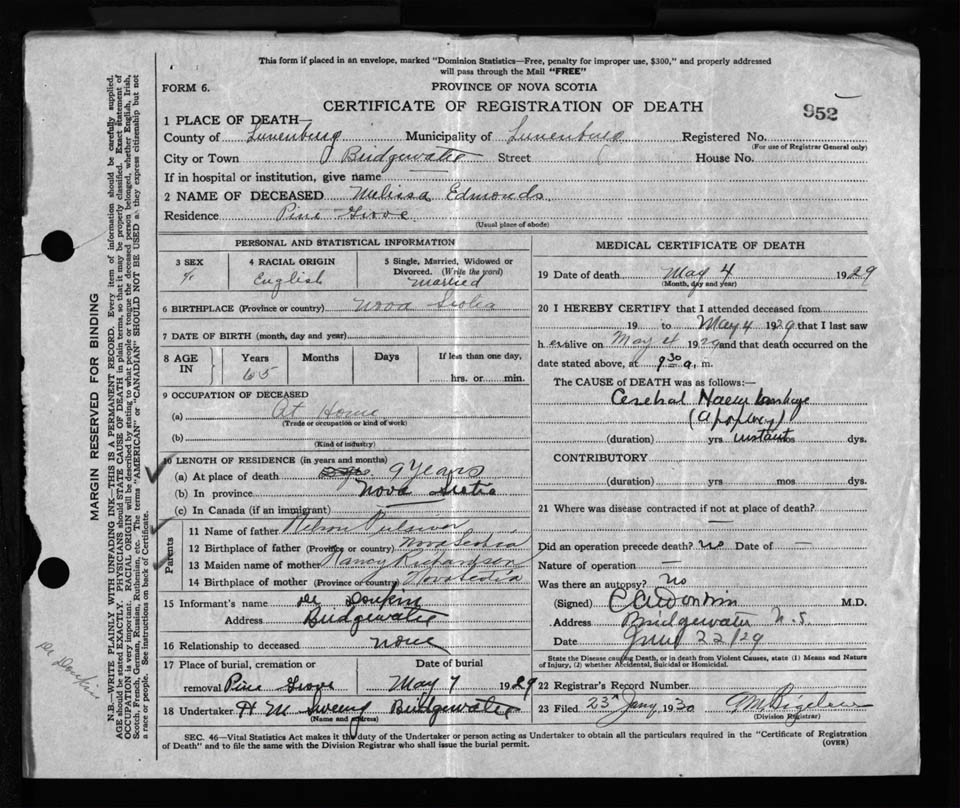 This form if placed in an envelope, marked "Dominion Statistics—Free, penalty for improper use, $300," and properly addressed
will pass through the Mail "FREE"
FORM 6.
PROVINCE OF NOVA SCOTIA
CERTIFICATE OF REGISTRATION OF DEATH
952
1 PLACE OF DEATH—
County of Lunenburg Municipality of Lunenburg Registered No.
(For use of Registrar General only)
City or Town Bridgewater Street House No.
If in hospital or institution, give name
2 NAME OF DECEASED Melissa Edmonds
Residence Pine Grove
(Usual place of abode)
PERSONAL AND STATISTICAL INFORMATION
3 SEX 4 RACIAL ORIGIN 5 Single, Married, Widowed or Divorced. (Write the word)
English Married
6 BIRTHPLACE (Province or country) Nova Scotia
7 DATE OF BIRTH (month, day and year)
8 AGE IN Years Months Days If less than one day,
65 hrs. or min.
9 OCCUPATION OF DECEASED
(a) At Home
(Trade or occupation or kind of work)
(b)
(Kind of industry)
10 LENGTH OF RESIDENCE (in years and months)
(a) At place of death 9 Years
(b) In province Nova Scotia
(c) In Canada (if an immigrant)
Parents
11 Name of father Nelson
12 Birthplace of father (Province or country) Nova Scotia
13 Maiden name of mother Nancy
14 Birthplace of mother (Province or country) Nova Scotia
15 Informant's name Dr Donkin
Address Bridgewater
16 Relationship to deceased none
17 Place of burial, cremation or Date of burial
removal Pine Grove May 7 1929
18 Undertaker H M Bridgewater
(Name and address)
MEDICAL CERTIFICATE OF DEATH
19 Date of death May 4 1929
(Month, day and year)
20 I HEREBY CERTIFY that I attended deceased from
19 to May 4 1929 that I last saw
her alive on May 4 1929 and that death occurred on the
date stated above, at 9 30 a. m.
The CAUSE OF DEATH was as follows:—
Cerebral Haemorrhage
(Apoplexy)
(duration) yrs instant mos dys.
CONTRIBUTORY
(duration) yrs. mos. dys.
21 Where was disease contracted if not at place of death?
—
Did an operation precede death? no Date of —
Nature of operation —
Was there an autopsy? no
(Signed) Donkin M.D.
Address Bridgewater N.S.
Date 22/29
State the Disease causing Death, or in death from Violent Causes, state (1) Means and Nature
of Injury, (2) whether Accidental, Suicidal or Homicidal.
22 Registrar's Record Number
23 Filed 23rd Jany 1930 Bigelow
(Division Registrar)
SEC. 46—Vital Statistics Act makes it the duty of the Undertaker or person acting as Undertaker to obtain all the particulars required in the "Certificate of Registration
of Death" and to file the same with the Division Registrar who shall issue the burial permit.
(OVER)
MARGIN RESERVED FOR BINDING
N.B.—WRITE PLAINLY WITH UNFADING INK—THIS IS A PERMANENT RECORD. Every item of information should be carefully supplied.
AGE should be stated EXACTLY. PHYSICIANS should STATE CAUSE OF DEATH in plain terms, so that it may be properly classified. Exact statement of
OCCUPATION is very important. RACIAL ORIGIN will be described by stating to what people or tongue the deceased person belonged, whether English, Irish,
Scotch, French, German, Russian, Ruthenian, etc. The terms "AMERICAN" or "CANADIAN" SHOULD NOT BE USED as they express citizenship but not
a race or people. See instructions on back of Certificate.
Dr Donkin